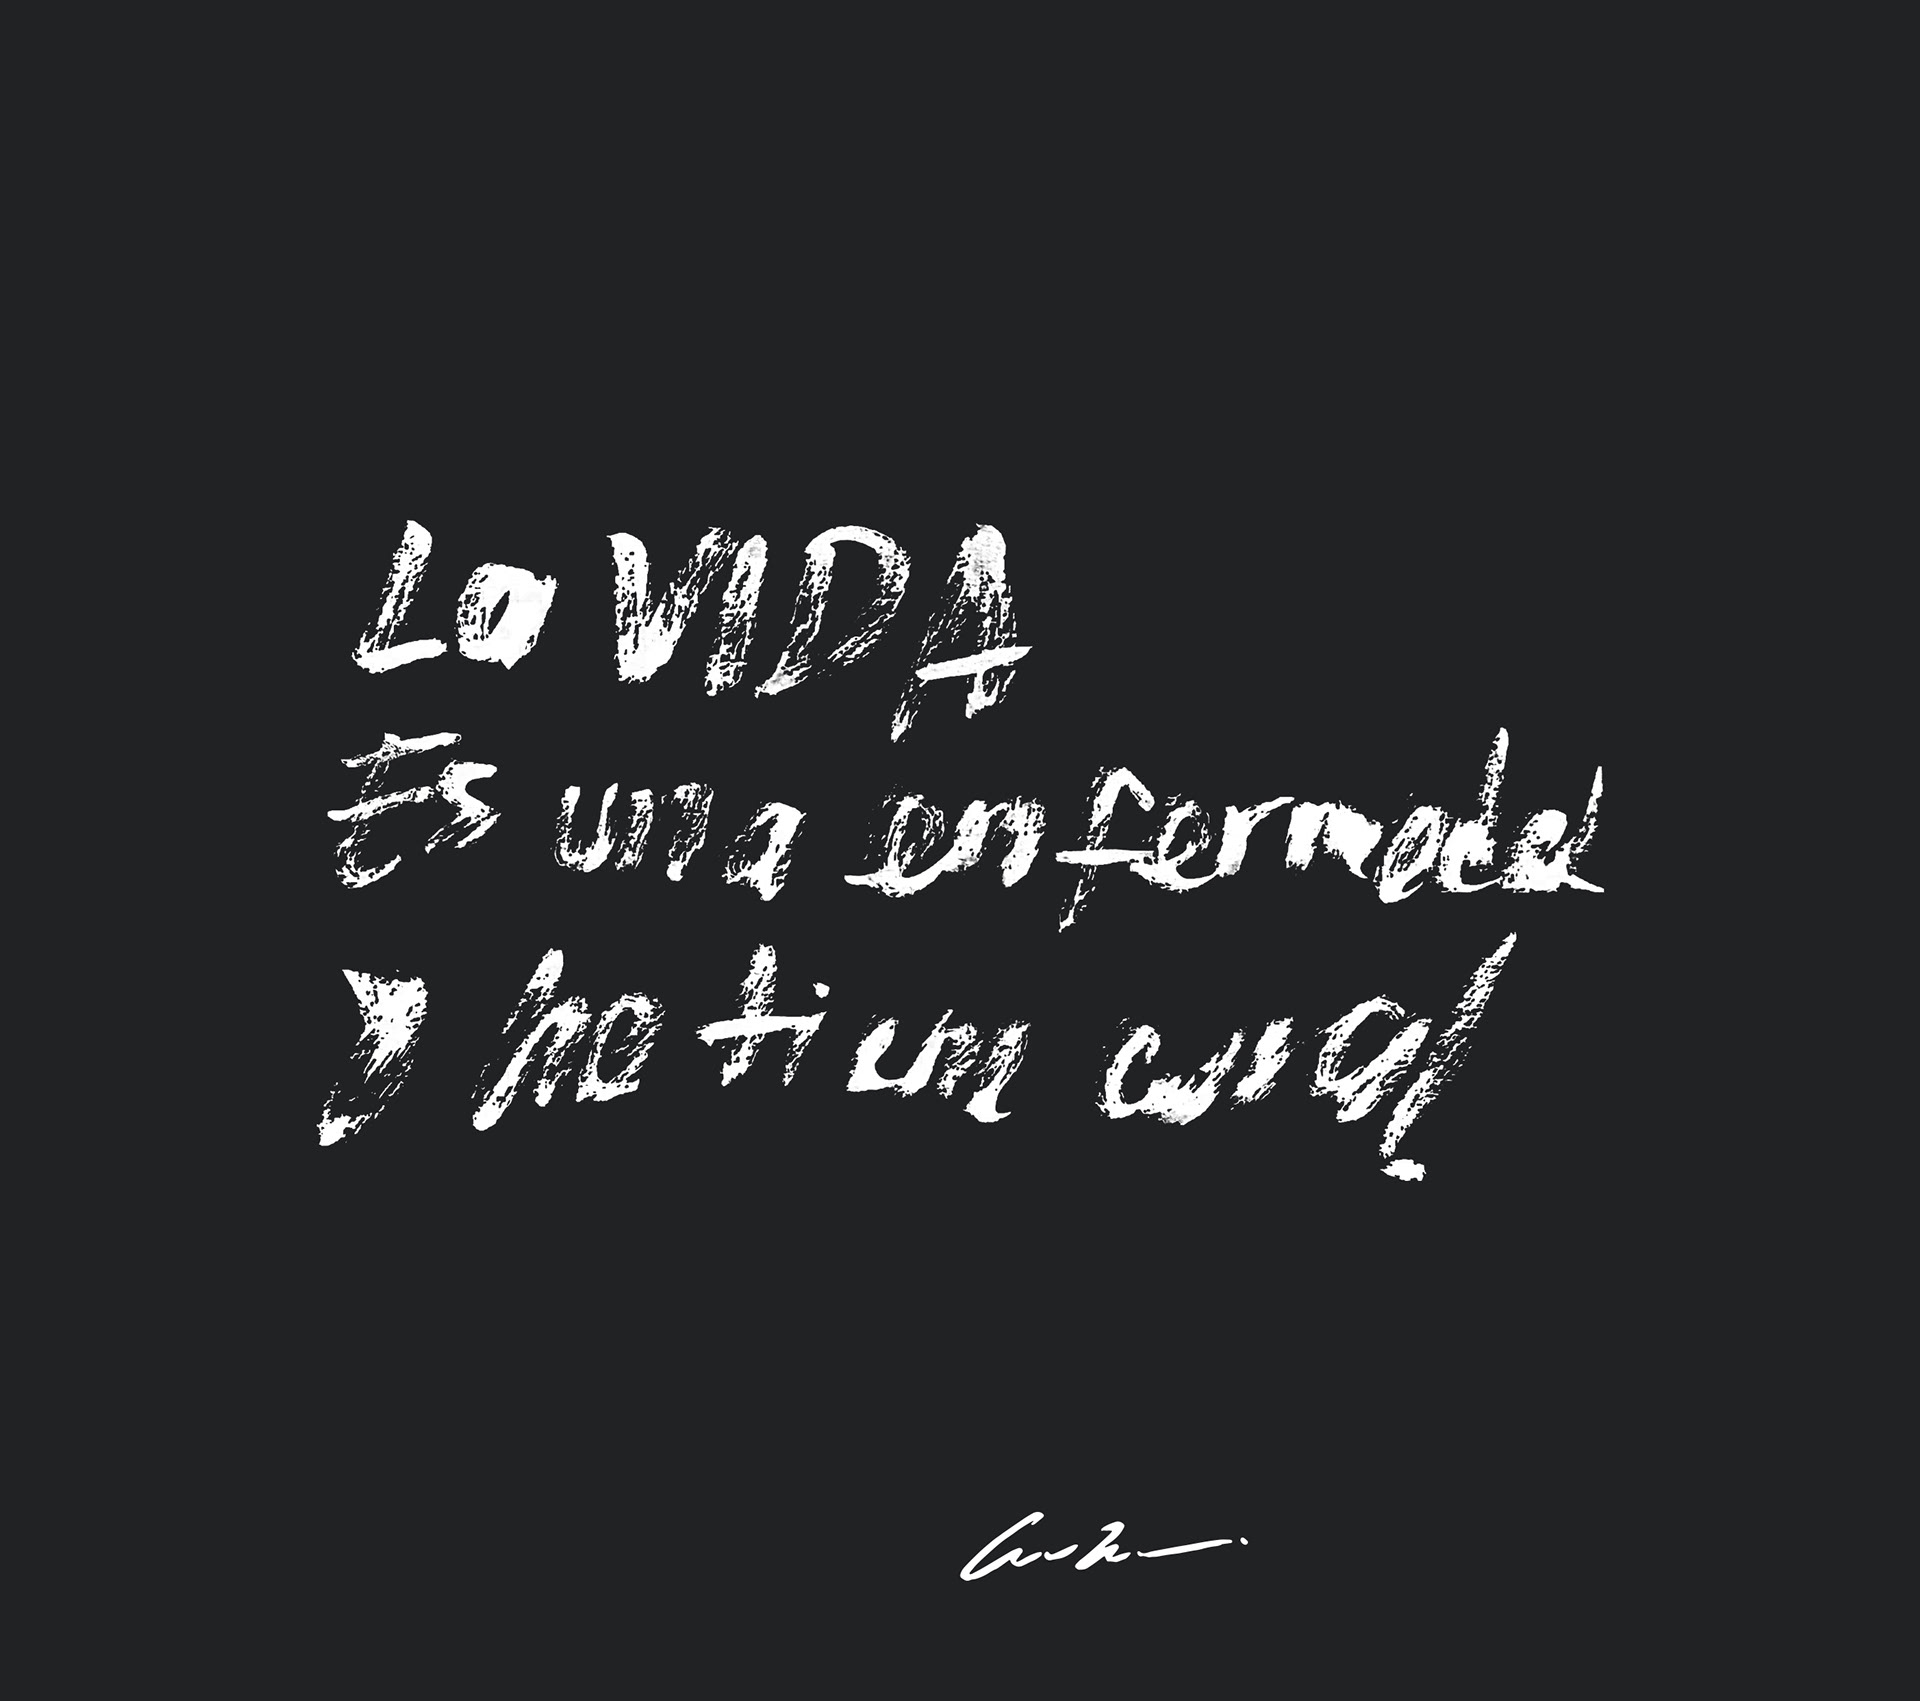 La VIDA
Es una enfermedad
y no tiene cura!